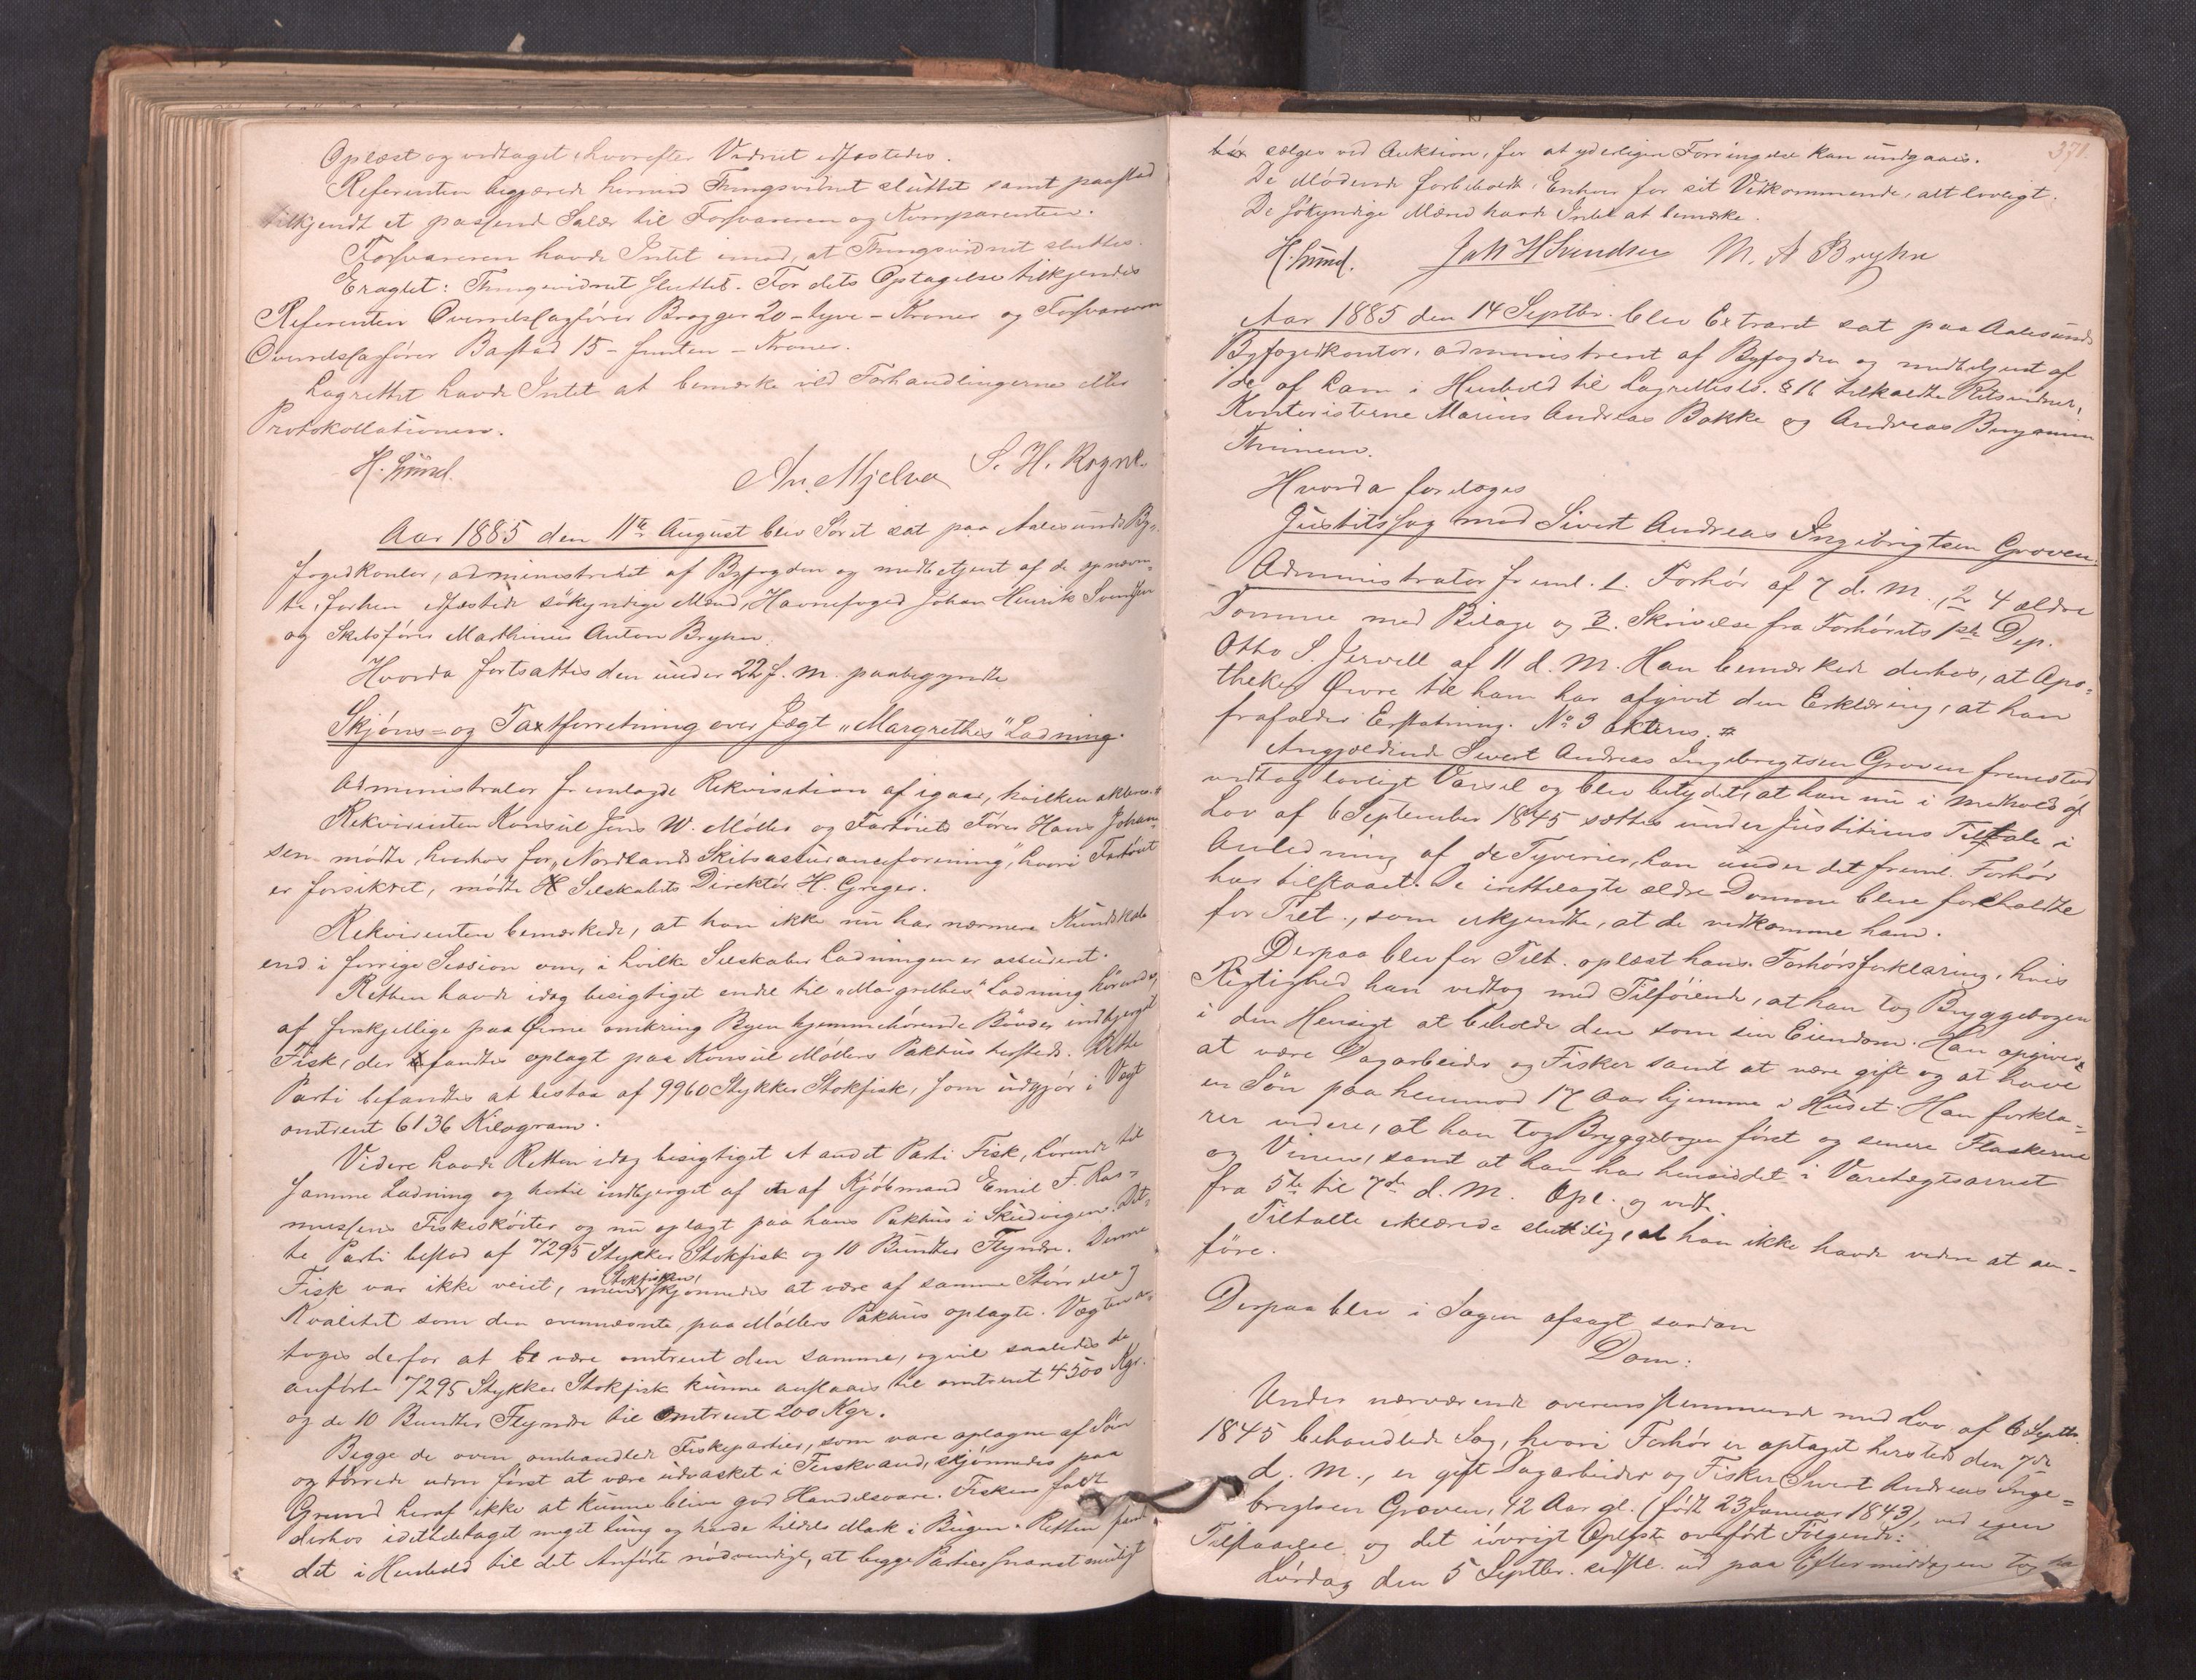 Oplæst og vedtaget, hvorefter Vidnet edfæstedes.
Referenten begjærede hermed Thingsvidnet sluttet samt paastod
tilkjendt et passende Salær til Forsvareren og Komparenten.
Forsvareren havde Intet imod, at Thingsvidnet sluttes.
Eragtet: Thingsvidnet sluttet. For dets Optagelse tilkjendes
Referenten Overretssagfører Brogger 20 - tyve - Kroner og Forsvareren
Overretssagfører Bastad 15 - femten - Kroner.
Lagrettet havde Intet at bemærke ved Forhandlingerne eller
Protokollationen.
H. Lund. An. Mjelva S. H. Rogne
Aar 1885 den 11te August blev Søret sat paa Aalesunds By-
fogedkontor, administreret af Byfogden og medbetjent af de opnævn-
te, forhen edfæstede søkyndige Mænd, Havnefoged Johan Henrik Svendsen
og Skibsfører Marthinus Anton Bryhn.
Hvorda fortsattes den under 22 f. M. paabegyndte
Skjøns- og Taxtforretning over Jægt "Margrethes" Ladning.
Administrator fremlagde Rekvisition af igaar, hvilken akteres #
Rekvirenten Konsul Jens W. Møller og Fartøiets Fører Hans Johan-
sen mødte, hvorhos for "Nordlands Skibsassuranceforening", hvori Fartøiet
er forsikret, mødte Selskabets Direktør H. Greger.
Rekvirenten bemærkede, at han ikke nu har nærmere Kundskab
end i forrige Session om, i hvilke Selskaber Ladningen er assureret.
Retten havde idag besigtiget endel til "Margrethes" Ladning hørende,
af forskjellige paa Øerne omkring Byen hjemmehørende Bønder indbjerget
Fisk, der fandtes oplagt paa Konsul Møllers Pakhus hersteds. Dette
Parti befandtes at bestaa af 9960 Stykker Stokfisk, som udgjør i Vægt
omtrent 6136 Kilogram.
Videre havde Retten idag besigtiget et andet Parti Fisk, hørende til
samme Ladning og hertil indbjerget af af Kjøbmand Emil F. Ras-
mussens Fiskeskøiter og nu oplagt paa hans Pakhus i Skudvigen. Det-
te Parti bestod af 7295 Stykker Stokfisk og 10 Bundter Flyndre. Denne
Fisk var ikke veiet, men Stokfisken, skjønnedes at være af samme Størrelse og
Kvalitet som den ovennævnte, paa Møllers Pakhus oplagte. Vægten an-
toges derfor at være omtrent den samme, og vil saaledes de
anførte 7295 Stykker Stokfisk kunne anslaaes til omtrent 4500 Kgr.
og de 10 Bundter Flyndre til omtrent 200 Kgr.
Begge de oven omhandlede Fiskepartier, som vare optagne af Søen
og tørrede uden først at være udvasket i Ferskvand, skjønnedes paa
Grund heraf ikke at kunne blive god Handelsvare. Fisken faldt
derhos idethele taget meget tung og havde tildels Mak i Bugen. Retten fandt
det i Henhold til det Anførte nødvendigt, at begge Partier snarest muligt
371.
bør sælges ved Auktion, for at yderligere Forringelse kan undgaaes.
De Mødende forbeholdt, Enhver for sit Vedkommende, alt lovligt.
De søkyndige Mænd havde Intet at bemærke.
H. Lund. Joh H Svendsen M. A Bryhn
Aar 1885 den 14 Septbr. blev Extraret sat paa Aalesunds
Byfogedkontor, administreret af Byfogden og medbetjent af
de af ham i Henhold til Lagretteslov. § 16 tilkaldte Retsvidner,
Kontoristerne Marius Andreas Bakke og Andreas Benjamin
Hvorda foretoges
Justitssag mod Sivert Andreas Ingebrigtsen Groven.
Administrator freml. 1. Forhør af 7 d. M., 2 4 ældre
Domme med Bilage og 3. Skrivelse fra Forhørets 1ste Dep.
Otto S. Jervell af 11 d. M. Han bemærkede derhos, at Apo-
theker Øwre til ham har afgivet den Erklæring, at han
frafalder Erstatning. No 3 akteres. #
Angjældende Sivert Andreas Ingebrigtsen Groven fremstod
vedtog lovligt Varsel og blev betydet, at han nu i Medhold af
Lov af 6 September 1845 sættes under Justitiens Tiltale i
Anledning af de Tyverier, han under det freml. Forhør
har tilstaaet. De irettelagte ældre Domme bleve foreholdte
for Tilt., som erkjendte, at de vedkomme ham.
Derpaa blev for Tilt. oplæst hans Forhørsforklaring, hvis
Rigtighed han vedtog med Tilføiende, at han tog Bryggebogen
i den Hensigt at beholde den som sin Eiendom. Han opgiver
at være Dagarbeider og Fisker samt at være gift og at have
en Søn paa henimod 17 Aar hjemme i Huset. Han forkla-
rer videre, at han tog Bryggebogen først og senere Flaskerne
og Vinen, samt at han har hensiddet i Varetægtsarrest
fra 5te til 7de d. M. Opl. og vedt.
Tiltalte erklærede sluttelig, at han ikke havde videre at an-
føre.
Derpaa blev i Sagen afsagt saadan
Dom:
Under nærværende overensstemmende med Lov af 6 Septbr.
1845 behandlede Sag, hvori Forhør er optaget hersteds den 7de
d. M., er gift Dagarbeider og Fisker Sivert Andreas Inge-
brigtsen Groven, 42 Aar gl. (født 23 Januar 1843), ved egen
Tilstaaelse og det iøvrigt Oplyste overført Følgende:
Lørdag den 5 Septbr. sidstl. ud paa Eftermiddagen tog han